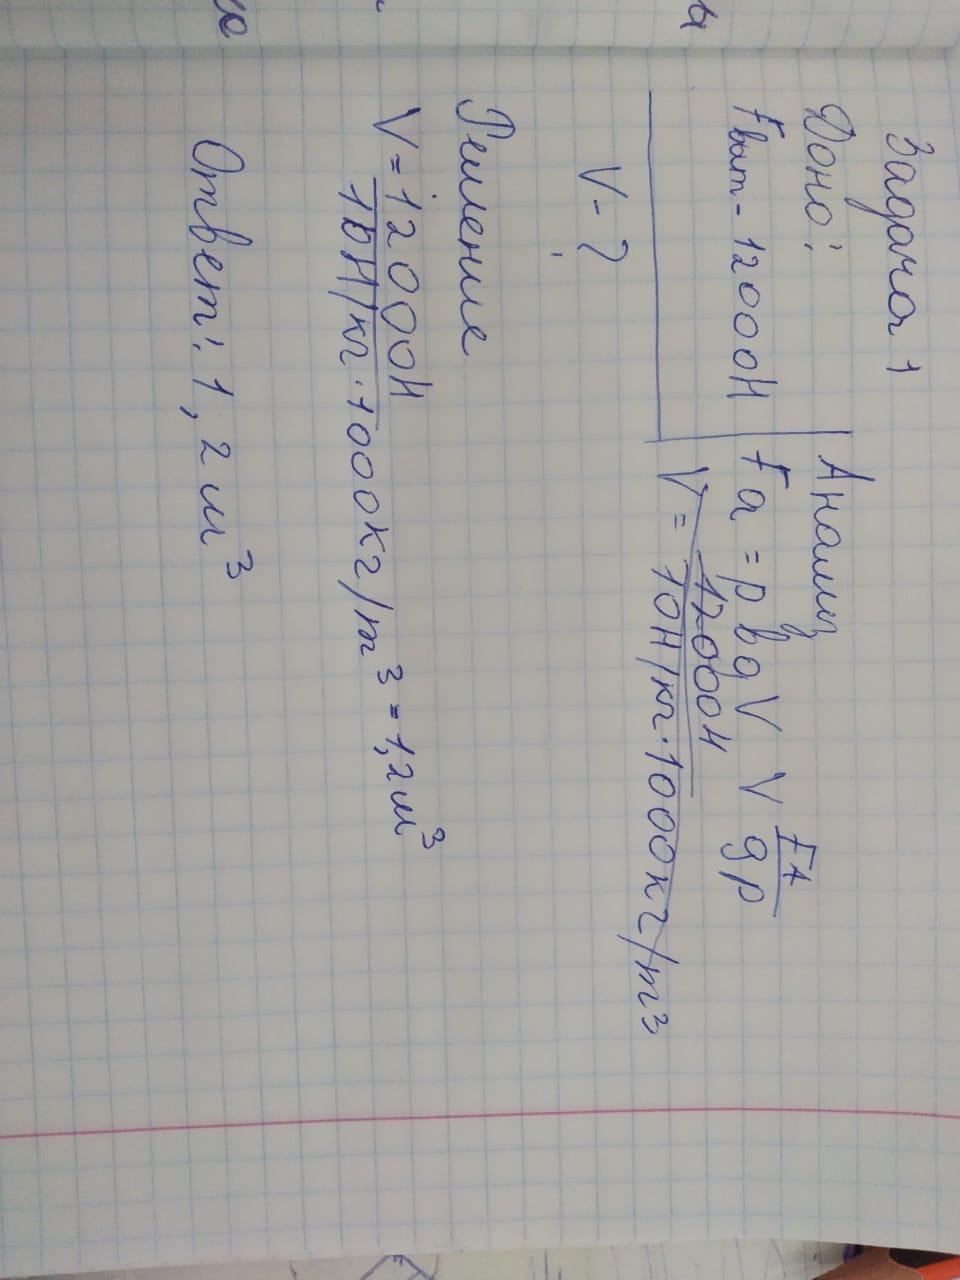 Задача 1
Дано:
Fвыт - 12000Н
V - ?
Анализ
Fa = ρвgV V FA/gρ
V = 12000Н/10Н/кг·1000кг/m³
Решение
V = 12000Н/10Н/кг·1000кг/m³ = 1,2м³
Ответ: 1,2м³